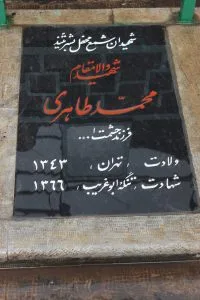 شهیدان شمع محفل بشریتند
شهید والامقام
محمد طاهری
فرزند حشمت ا...
ولادت ، تهران ، ۱۳۴۳
شهادت ، تنگه ابوغریب ، ۱۳۶۶